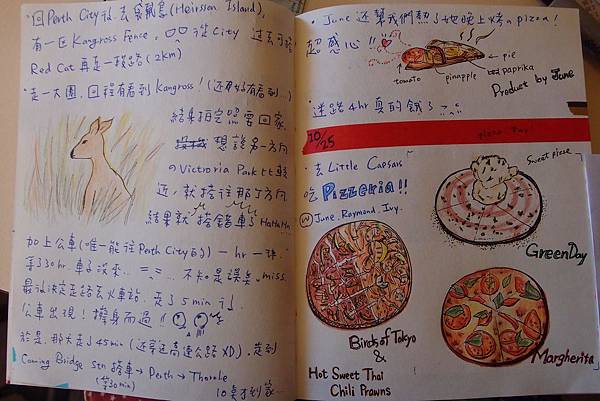 ·回Perth City後去(Heirsson Island),
有一區Kangross Fence, 從City 過去可搭
Red Cat再走一段路(2km)
·走一大圈,回程有看到Kangross!(還好有看到...)
結果拍完照要回家,
想說另一方向
のVictroria Park比較
近,就搭往那了方向
結果就搭錯車了HaHaHa
加上公車(唯一能往Perth City的)一hr一班.
等了30hr車子沒來. =_= ... 不知是誤點 or miss.
最後決定走路去火車站. 走了5min
公車出現!擦身而過!!
於是,那天走了45min(還穿過高速公路XD.). 走到
Coming Bridge Stn 搭車→Perth→Thornle
(等30min)
10點才到家
·June 還幫我們熱了她晚上烤の pizza!
超感心!!
pie
tomato
pinapple
paprika
Product by June
·迷路4hr真的餓了
10/25
pizza Day
·去Little Caesars
吃Pizzeria!!
June. Raymond. Ivy.
Sweet pizza
GreenDay
Birds of Tokyo
&
Hot Sweet Thai
Chili Prawns
Margherita